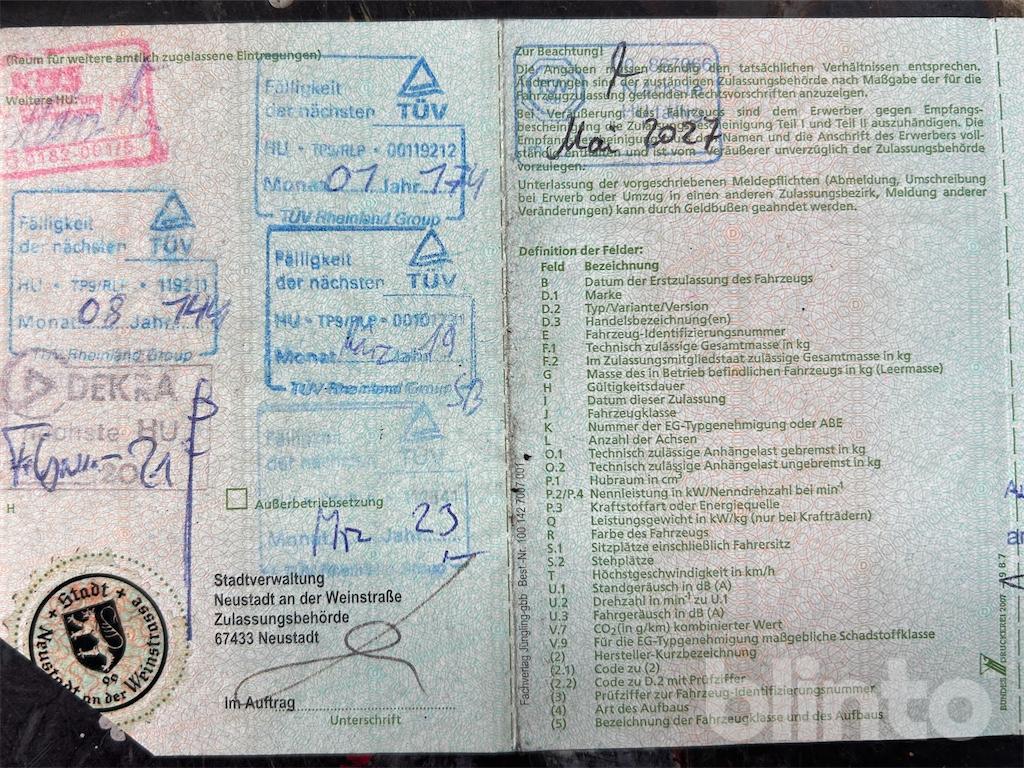 (Raum für weitere amtlich zugelassene Eintragungen)
Weitere HU:
Fälligkeit
der nächsten TÜV
HU • TPS/RLP • 00119212
Monat 01 Jahr 17
TÜV Rheinland Group
Fälligkeit
der nächsten TÜV
HU • TPS/RLP
Monat 08 Jahr 14
TÜV Rheinland Group
Fälligkeit
der nächsten TÜV
HU • TPS/RLP
Monat Mrz Jahr 19
TÜV Rheinland Group
DEKRA
nächste HU
21
20
Fälligkeit
der nächsten TÜV
Monat Mrz Jahr 23
H
Außerbetriebsetzung
Stadtverwaltung
Neustadt an der Weinstraße
Zulassungsbehörde
67433 Neustadt
Stadt
Neustadt an der Weinstrasse
99
Im Auftrag
Unterschrift
Zur Beachtung!
Die Angaben müssen ständig den tatsächlichen Verhältnissen entsprechen.
Änderungen sind der zuständigen Zulassungsbehörde nach Maßgabe der für die
Fahrzeugzulassung geltenden Rechtsvorschriften anzuzeigen.
Bei Veräußerung des Fahrzeugs sind dem Erwerber gegen Empfangs-
bescheinigung die Zulassungsbescheinigung Teil I und Teil II auszuhändigen. Die
Namen und die Anschrift des Erwerbers voll-
und ist vom Veräußerer unverzüglich der Zulassungsbehörde
vorzulegen.
Mai 2027
Unterlassung der vorgeschriebenen Meldepflichten (Abmeldung, Umschreibung
bei Erwerb oder Umzug in einen anderen Zulassungsbezirk, Meldung anderer
Veränderungen) kann durch Geldbußen geahndet werden.
Definition der Felder:
Feld Bezeichnung
B Datum der Erstzulassung des Fahrzeugs
D.1 Marke
D.2 Typ/Variante/Version
D.3 Handelsbezeichnung(en)
E Fahrzeug-Identifizierungsnummer
F.1 Technisch zulässige Gesamtmasse in kg
F.2 Im Zulassungsmitgliedstaat zulässige Gesamtmasse in kg
G Masse des in Betrieb befindlichen Fahrzeugs in kg (Leermasse)
H Gültigkeitsdauer
I Datum dieser Zulassung
J Fahrzeugklasse
K Nummer der EG-Typgenehmigung oder ABE
L Anzahl der Achsen
O.1 Technisch zulässige Anhängelast gebremst in kg
O.2 Technisch zulässige Anhängelast ungebremst in kg
P.1 Hubraum in cm³
P.2/P.4 Nennleistung in kW/Nenndrehzahl bei min⁻¹
P.3 Kraftstoffart oder Energiequelle
Q Leistungsgewicht in kW/kg (nur bei Krafträdern)
R Farbe des Fahrzeugs
S.1 Sitzplätze einschließlich Fahrersitz
S.2 Stehplätze
T Höchstgeschwindigkeit in km/h
U.1 Standgeräusch in dB (A)
U.2 Drehzahl in min⁻¹ zu U.1
U.3 Fahrgeräusch in dB (A)
V.7 CO₂(in g/km) kombinierter Wert
V.9 Für die EG-Typgenehmigung maßgebliche Schadstoffklasse
(2) Hersteller-Kurzbezeichnung
(2.1) Code zu (2)
(2.2) Code zu D.2 mit Prüfziffer
(3) Prüfziffer zur Fahrzeug-Identifizierungsnummer
(4) Art des Aufbaus
(5) Bezeichnung der Fahrzeugklasse und des Aufbaus
Fachverlag Jüngling-gbb Best.-Nr. 100 142 7007 001
BUNDESDRUCKEREI 2007
blinto